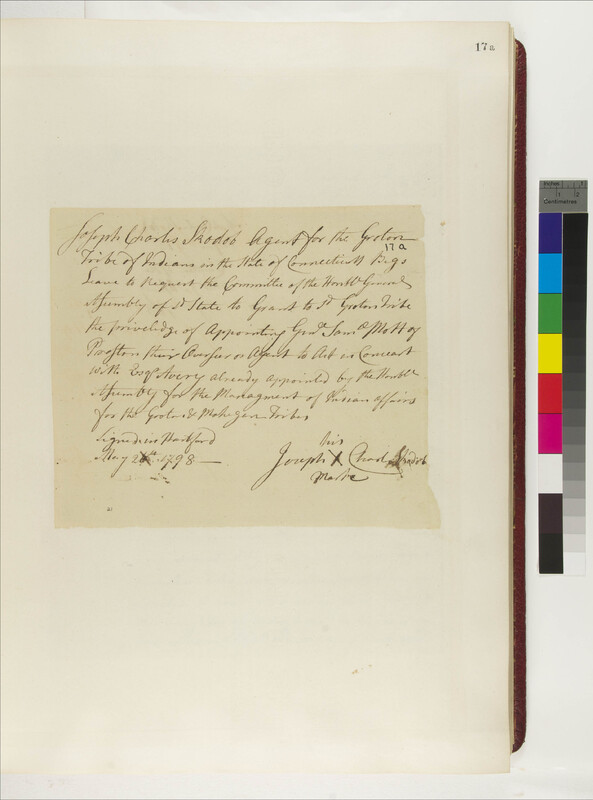 17a
Joseph Charles Skodob Agent for the Groton
17a
Tribe of Indians in the State of Connecticutt Begs
Leave to Request the Committee of the Honble General
Assembly of sd State to Grant to sd Groton Tribe
the priveledge of Appointing Genl Saml Mott of
Preston their Overseer or Agent to Act in Concert
with Esqr Avery already appointed by the Honble
Assembly for the Managment of Indian affairs
for the Groton & Mohegan Tribes
Signed in Hartford
May 1798 —
his
Joseph X Charles Skodob
Marke
Inches 1 2
Centimetres